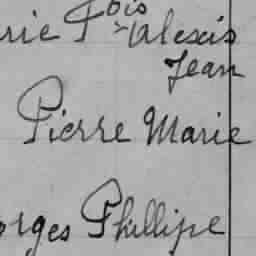 rie Fois Alexis
Jean
Pierre Marie
orges Phillipe